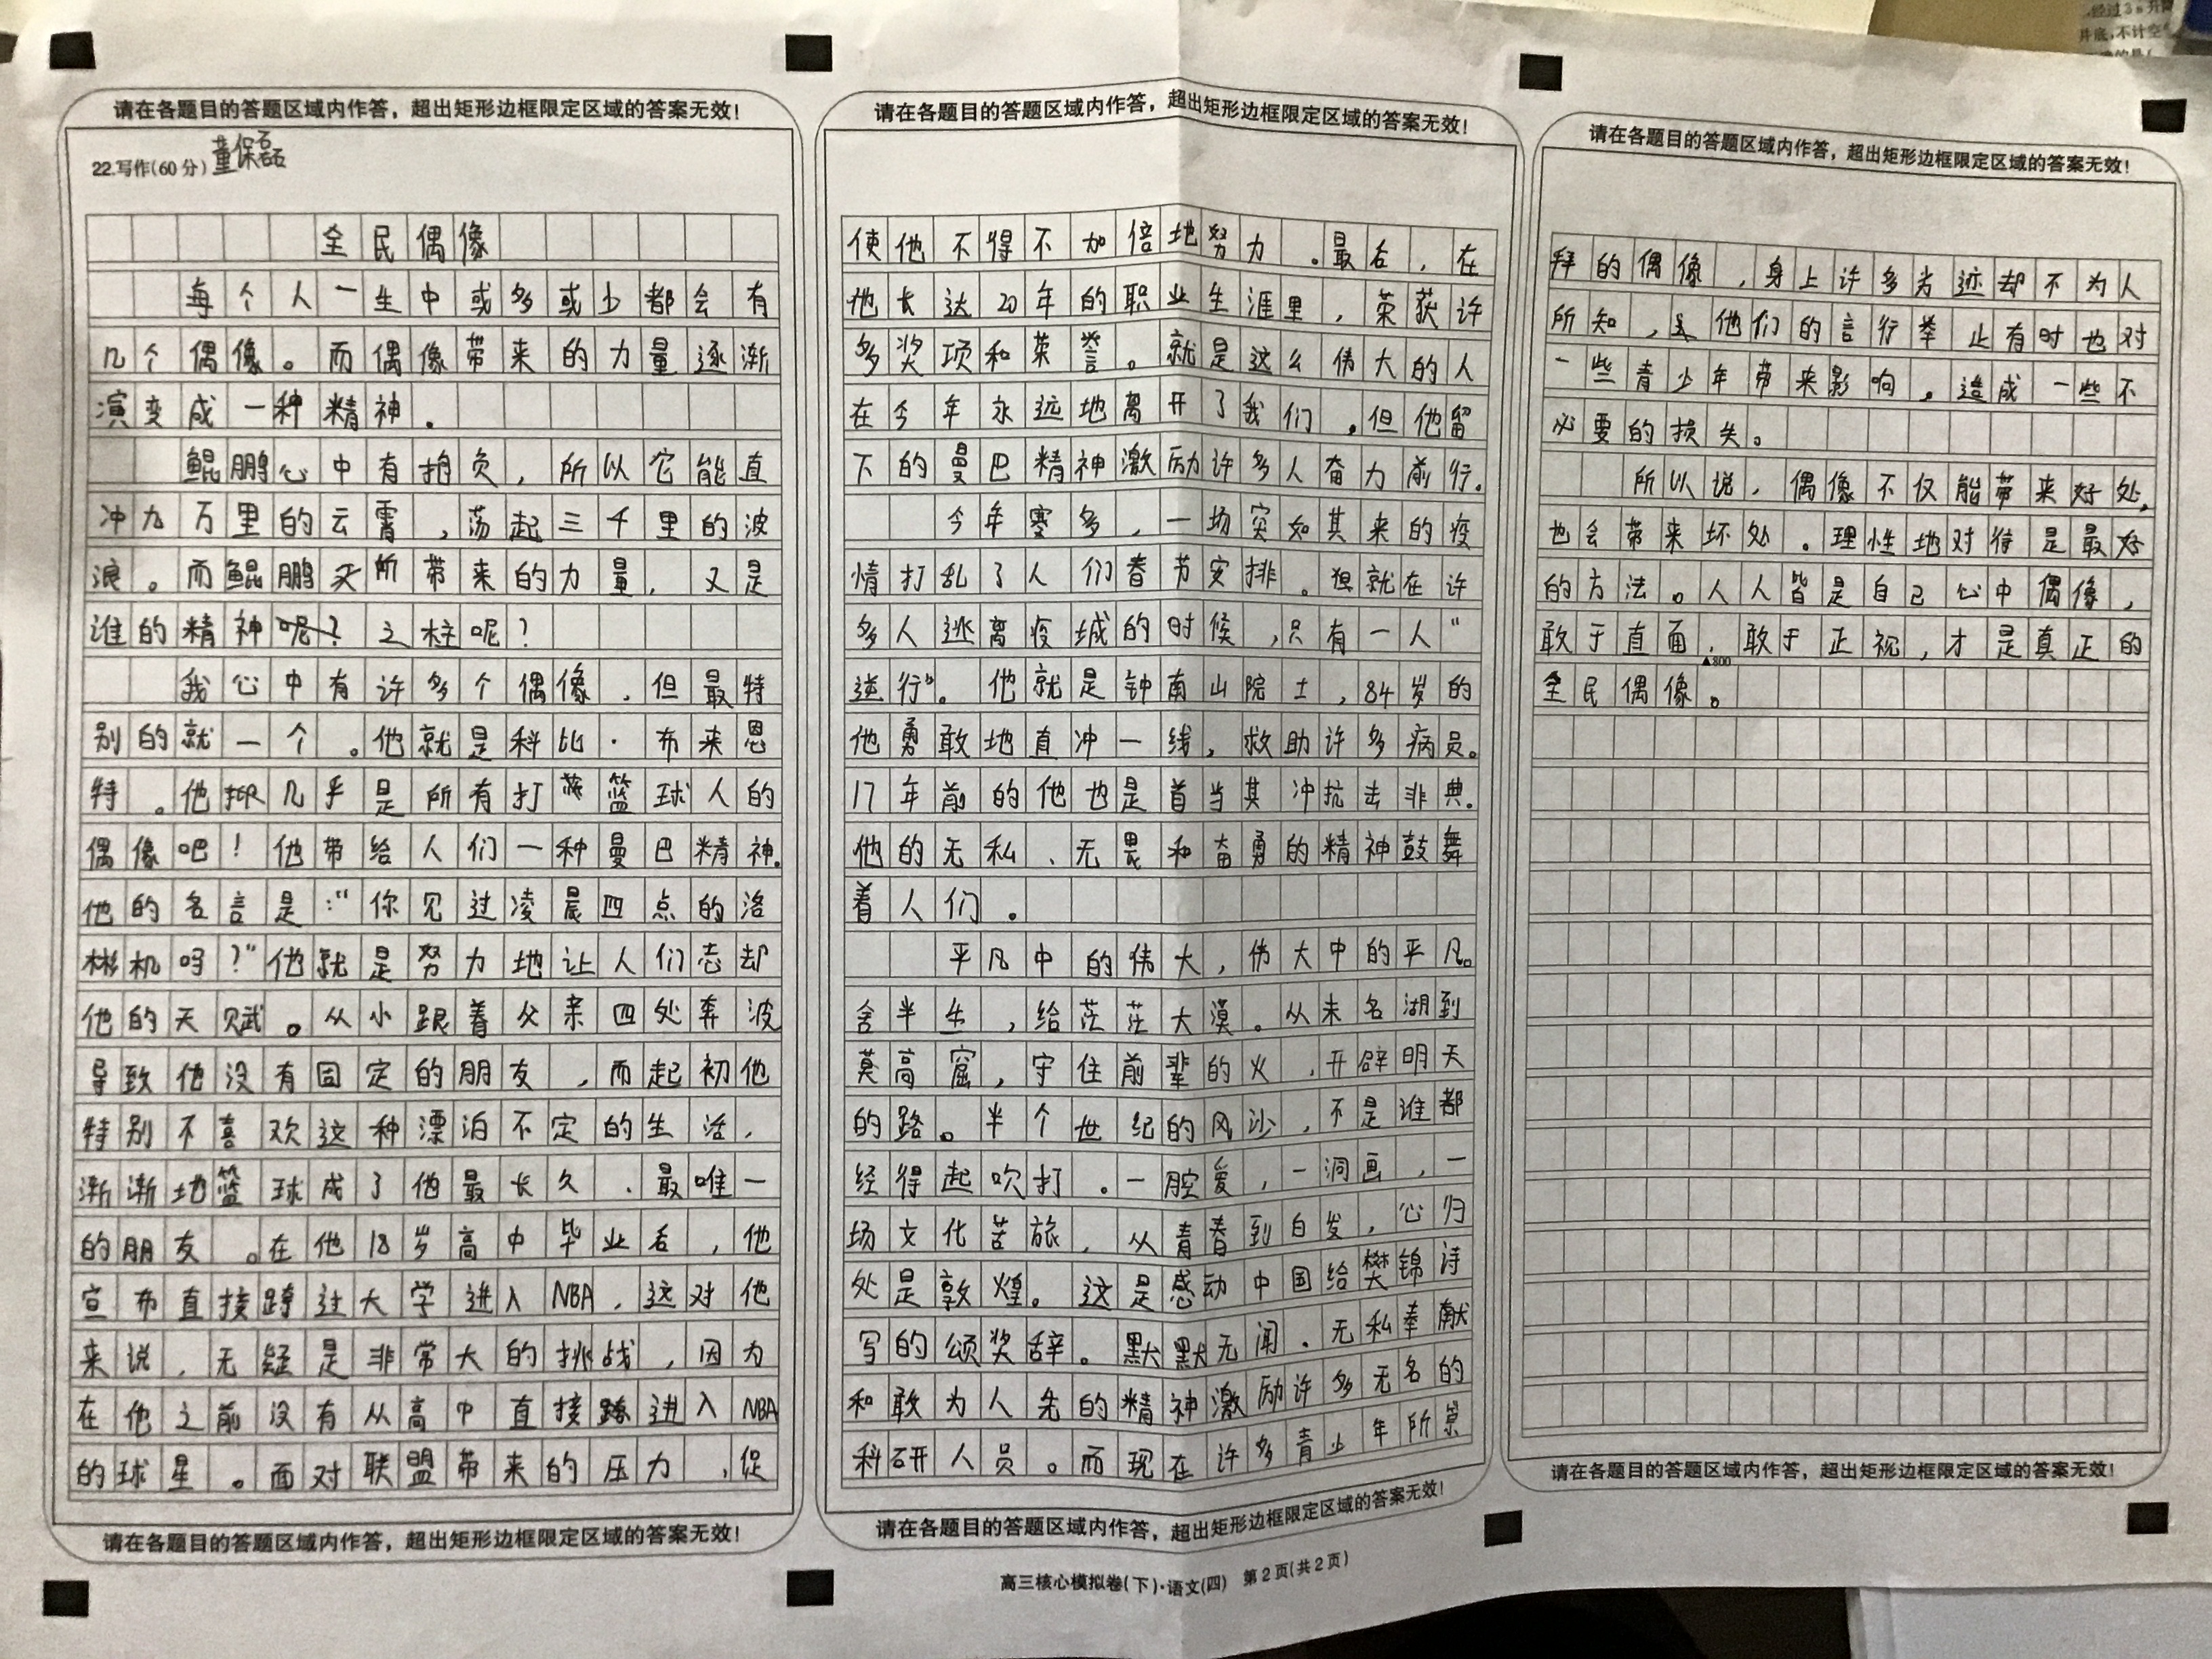 经过3s升
井底,不计空
请在各题目的答题区域内作答，超出矩形边框限定区域的答案无效!
22.写作(60分) 董保磊
全民偶像
每个人一生中或多或少都会有
几个偶像。而偶像带来的力量逐渐
演变成一种精神。
鲲鹏心中有抱负，所以它能直
冲九万里的云霄，荡起三千里的波
浪。而鲲鹏所带来的力量，又是
谁的精神之柱呢？
我心中有许多个偶像，但最特
别的就一个。他就是科比·布来恩
特。他几乎是所有打篮球人的
偶像吧！他带给人们一种曼巴精神。
他的名言是："你见过凌晨四点的洛
彬机吗？"他就是努力地让人们忘却
他的天赋。从小跟着父亲四处奔波
导致他没有固定的朋友，而起初他
特别不喜欢这种漂泊不定的生活，
渐渐地篮球成了他最长久、最唯一
的朋友。在他18岁高中毕业后，他
宣布直接跨过大学进入NBA，这对他
来说，无疑是非常大的挑战，因为
在他之前没有从高中直接跨进入NBA
的球星。面对联盟带来的压力，促
请在各题目的答题区域内作答，超出矩形边框限定区域的答案无效!
请在各题目的答题区域内作答，超出矩形边框限定区域的答案无效!
使他不得不加倍地努力。最后，在
他长达20年的职业生涯里，荣获许
多奖项和荣誉。就是这么伟大的人
在今年永远地离开了我们。但他留
下的曼巴精神激励许多人奋力前行。
今年寒冬，一场突如其来的疫
情打乱了人们春节安排。但就在许
多人逃离疫城的时候，只有一人"
逆行"。他就是钟南山院士，84岁的
他勇敢地直冲一线，救助许多病员。
17年前的他也是首当其冲抗击非典。
他的无私、无畏和奋勇的精神鼓舞
着人们。
平凡中的伟大，伟大中的平凡。
舍半生，给茫茫大漠。从未名湖到
莫高窟，守住前辈的火，开辟明天
的路。半个世纪的风沙，不是谁都
经得起吹打。一腔爱，一洞画，一
场文化苦旅，从青春到白发，心归
处是敦煌。这是感动中国给樊锦诗
写的颁奖辞。默默无闻、无私奉献
和敢为人先的精神激励许多无名的
科研人员。而现在许多青少年所崇
请在各题目的答题区域内作答，超出矩形边框限定区域的答案无效!
高三核心模拟卷(下)·语文(四) 第2页(共2页)
请在各题目的答题区域内作答，超出矩形边框限定区域的答案无效!
拜的偶像，身上许多劣迹却不为人
所知，他们的言行举止有时也对
一些青少年带来影响。造成一些不
必要的损失。
所以说，偶像不仅能带来好处，
也会带来坏处。理性地对待是最好
的方法。人人皆是自己心中偶像，
敢于直面，敢于正视，才是真正的
▲800
全民偶像。
请在各题目的答题区域内作答，超出矩形边框限定区域的答案无效!